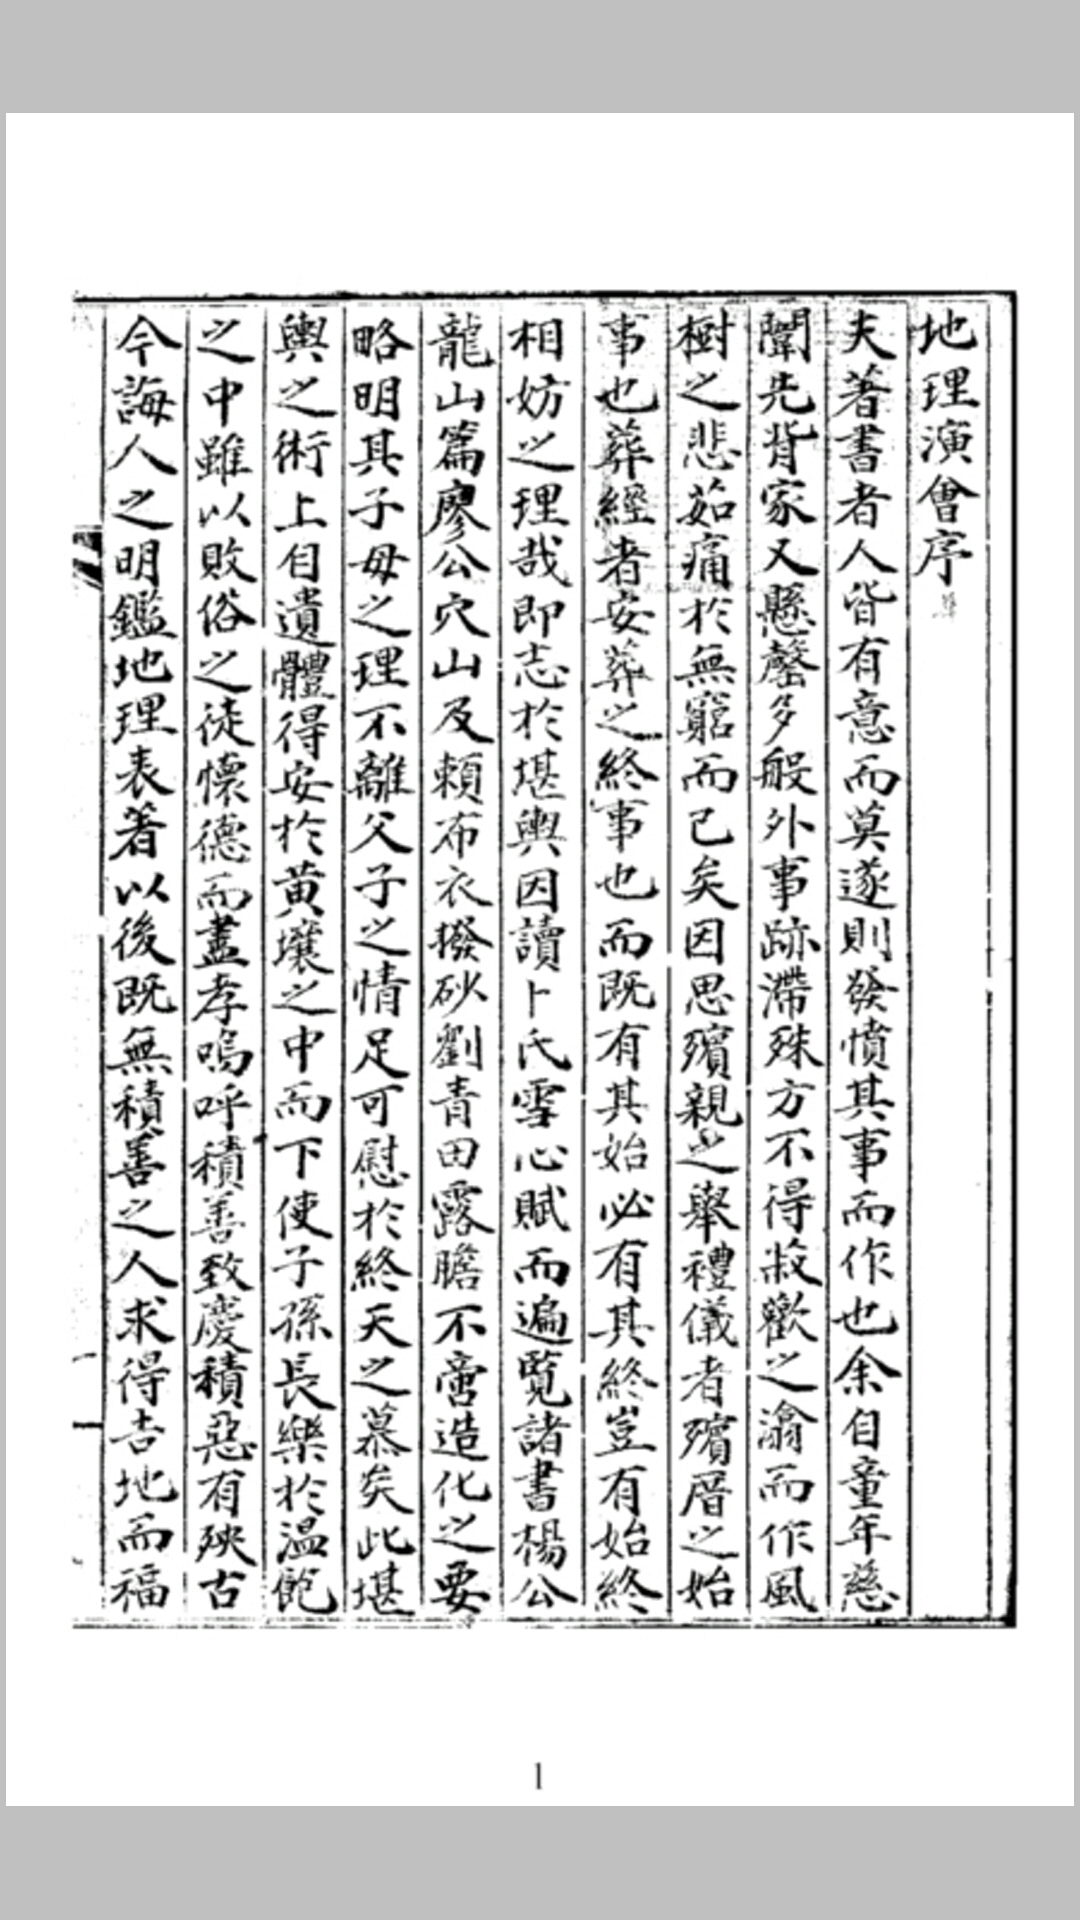 地理演會序
夫著書者人皆有意而莫遂則發憤其事而作也余自童年慈
闈先背家又懸罄多般外事跡滯殊方不得菽歡之瀹而作風
樹之悲茹痛於無窮而已矣因思殯親之舉禮儀者殯厝之始
事也葬經者安葬之終事也而既有其始必有其終豈有始終
相妨之理哉即志於堪輿因讀卜氏雪心賦而遍覽諸書楊公
龍山篇廖公穴山及賴布衣撥砂劉青田露膽不啻造化之要
略明其子母之理不離父子之情足可慰於終天之慕矣此堪
輿之術上自遺體得安於黄壤之中而下使子孫長樂於温飽
之中雖以敗俗之徒懷德而盡孝嗚呼積善致慶積惡有殃古
今誨人之明鑑地理表著以後既無積善之人求得吉地而福
1